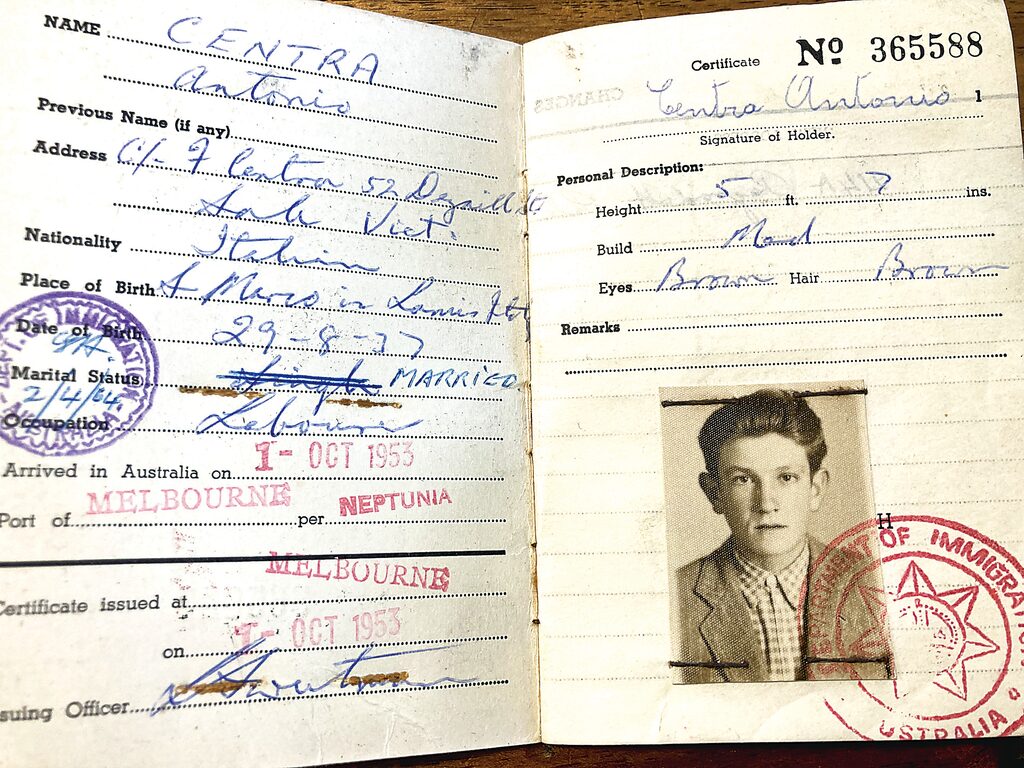 NAME CENTRA
Antonio
Previous Name (if any)
Address C/- F Centra 52
Sale Vict.
Nationality Italian
Place of Birth S Marco in Lamis
Date of Birth 29-8-37
Marital Status Single MARRIED
2/4/64.
Occupation Labourer
DEPT. OF IMMIGRATION
AUSTRALIA
Arrived in Australia on 1- OCT 1953
Port of MELBOURNE per NEPTUNIA
Certificate issued at MELBOURNE
on 1- OCT 1953
suing Officer
Certificate No 365588
CHANGES
Centra Antonio 1
Signature of Holder.
Personal Description:
Height 5 ft. 7 ins.
Build Med
Eyes Brown Hair Brown
Remarks
H
DEPARTMENT OF IMMIGRATION
AUSTRALIA